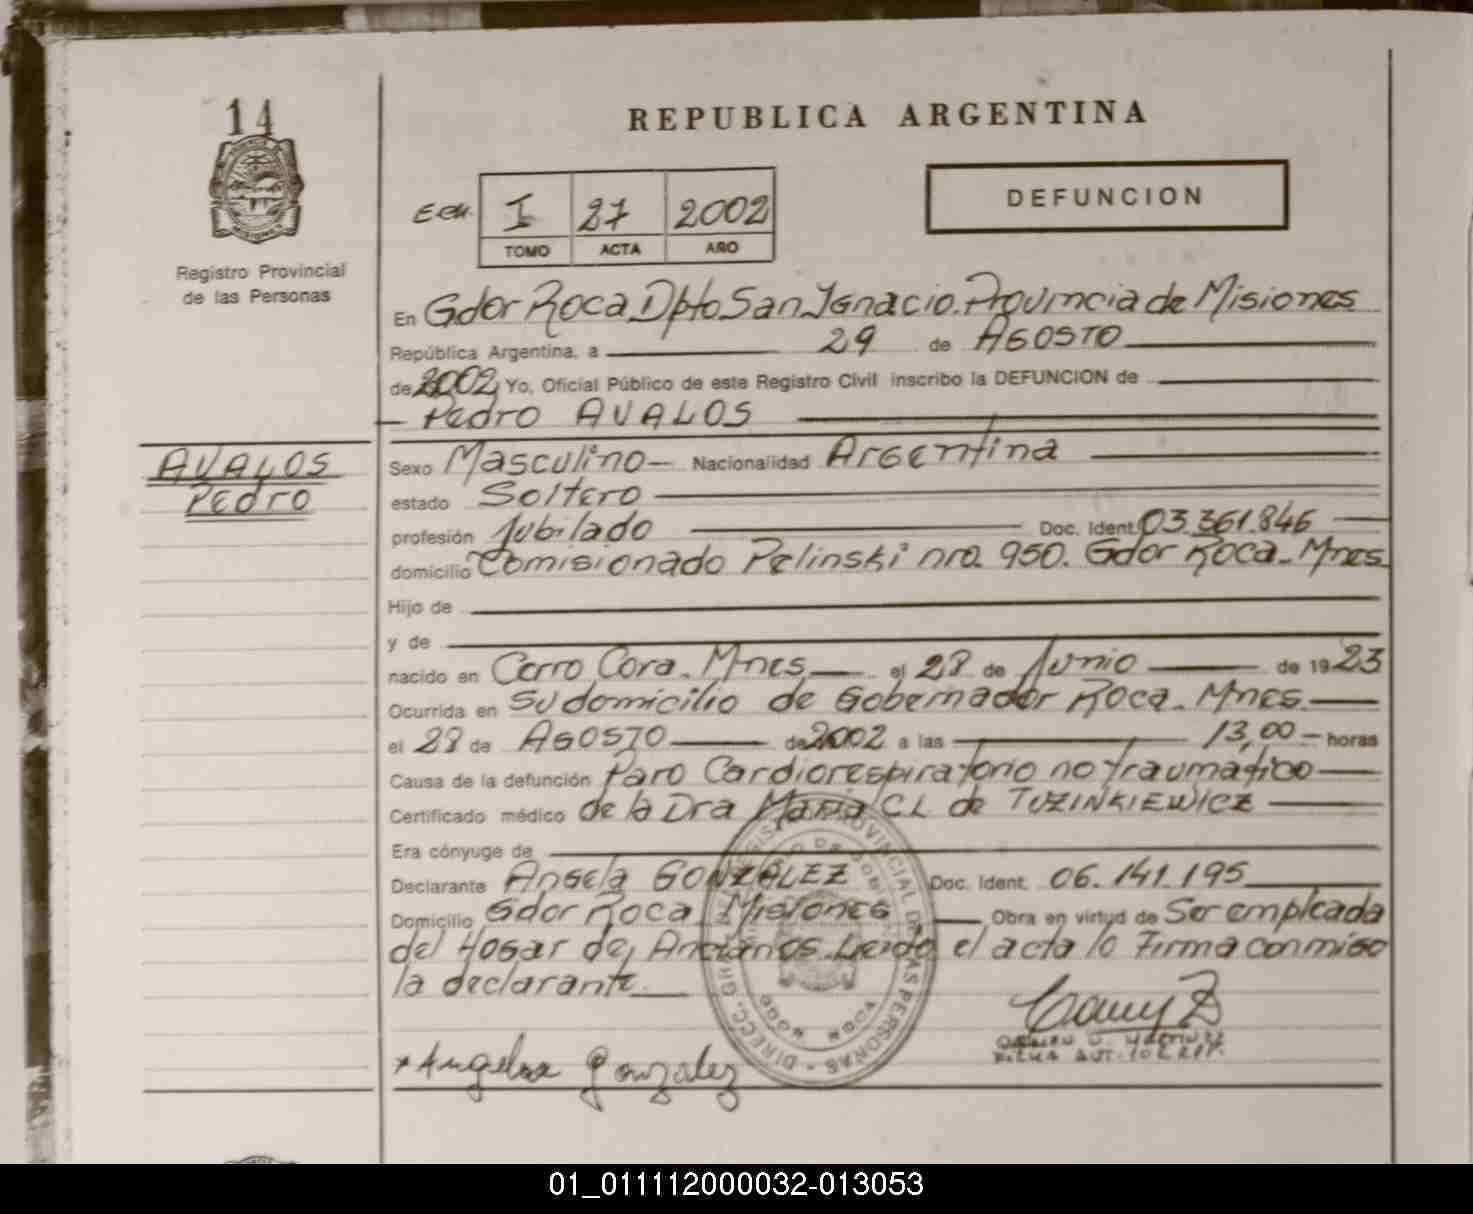 14
REPUBLICA ARGENTINA
DEFUNCION
I 27 2002
TOMO ACTA AÑO
Registro Provincial
de las Personas
En Gdor Roca Dpto San Ignacio. Provincia de Misiones
República Argentina, a 29 de AGOSTO
de 2002 Yo, Oficial Público de este Registro Civil inscribo la DEFUNCION de
Pedro AVALOS
AVALOS
Pedro
Sexo Masculino Nacionalidad Argentina
estado Soltero
profesión Jubilado Doc. Ident. 03.361.846
domicilio Comisionado Pelinski nro. 950. Gdor Roca. Mnes
Hijo de
y de
nacido en Cerro Cora. Mnes el 28 de Junio de 1923
Ocurrida en su domicilio de Gobernador Roca. Mnes.
el 28 de AGOSTO de 2002 a las 13,00 horas
Causa de la defunción Paro Cardiorespiratorio no traumatico
Certificado médico de la Dra Maria CL de TUZINKIEWICZ
Era cónyuge de
Declarante Angela GONZALEZ Doc. Ident. 06.141.195
Domicilio Gdor Roca. Misiones Obra en virtud de Ser empleada
del Hogar de Ancianos. Leida el acta lo Firma conmigo
la declarante.
x Angela Gonzalez
01_011112000032-013053